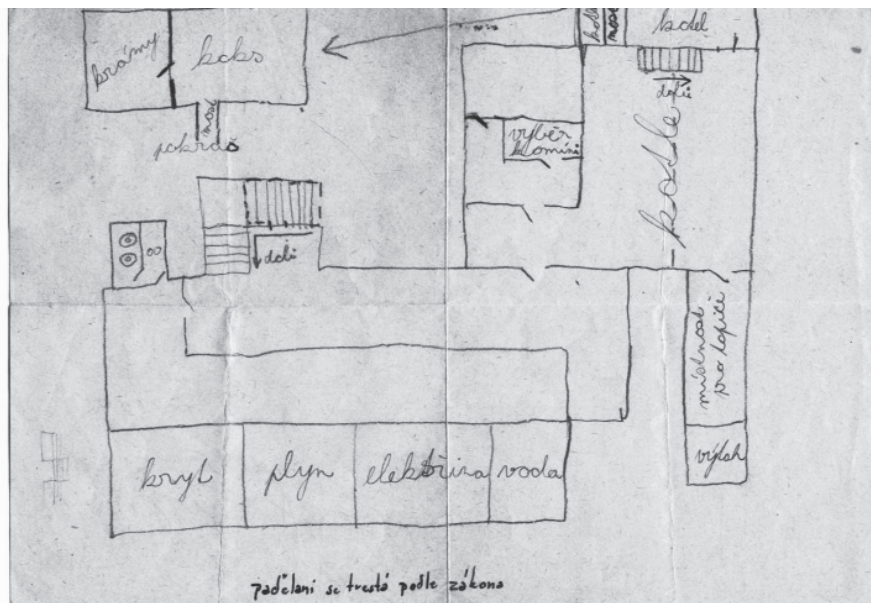 krámy
koks
most
pokrdš
kotel
dolů
výběr
komínů
kotle
dolů
místnost
pro topiče
výtah
kryt
plyn
elektřina
voda
padělani se trestá podle zákona